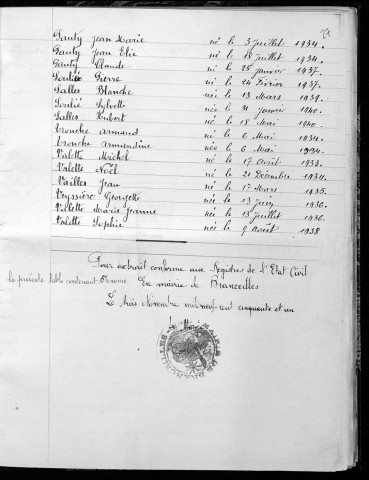 Gauty Jean Marie né le 3 Juillet 1934.
Gauty Jean Elie né le 16 Juillet 1934.
Gauty Claude né le 25 Janvier 1937.
Soulié Pierre né le 24 Février 1937.
Salles Blanche née le 13 Mars 1939.
Soulié Sylvette née le 31 Janvier 1940.
Salles Hubert né le 18 Mai 1940.
Tronche Armand né le 6 Mai 1934.
Tronche Armandine née le 6 Mai 1934.
Valette Michel né le 17 Août 1933.
Valette Noël né le 21 Décembre 1934.
Vailles Jean né le 1er Mars 1935.
Veyssière Georgette née le 13 Juin 1936.
Valette Marie Jeanne née le 15 Juillet 1936.
Valette Sophie née le 9 Août 1938
Pour extrait conforme aux Registres de l'Etat Civil
la présente table contenant En mairie de Branceilles
Le trois Novembre mil neuf cent cinquante et un
Le Maire
MAIRIE DE BRANCEILLES